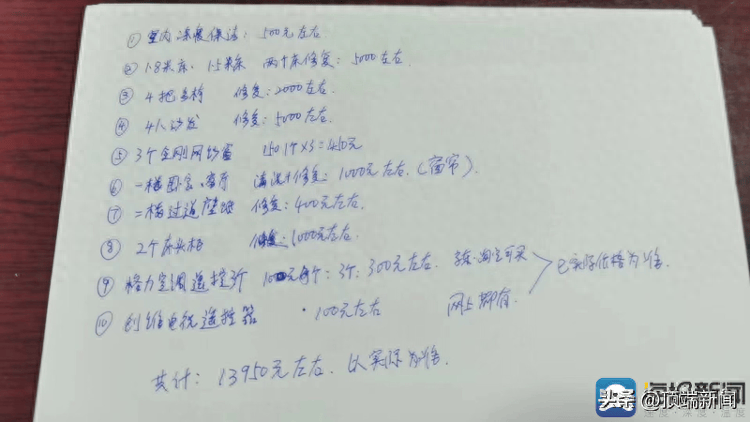 ① 室内深度保洁：500元左右
② 1.8米床、1.5米床 两个床修复：5000左右.
③ 4把餐椅 修复：2000左右.
④ 4人沙发 修复：5000左右.
⑤ 3个金刚网纱窗 150/个×3=450元
⑥ 一楼卧室、客厅 清洗+修复：1000元左右.(窗帘).
⑦ 二楼过道壁纸 修复：400元左右.
⑧ 2个床头柜 修复：1000元左右.
⑨ 格力空调遥控器 100元每个：3个：300元左右. 京东.淘宝可买
网上都有. 已实际价格为准.
⑩ 创维电视遥控器 100元左右
共计：13950元左右. 以实际为准.
海报新闻
头条 @顶端新闻